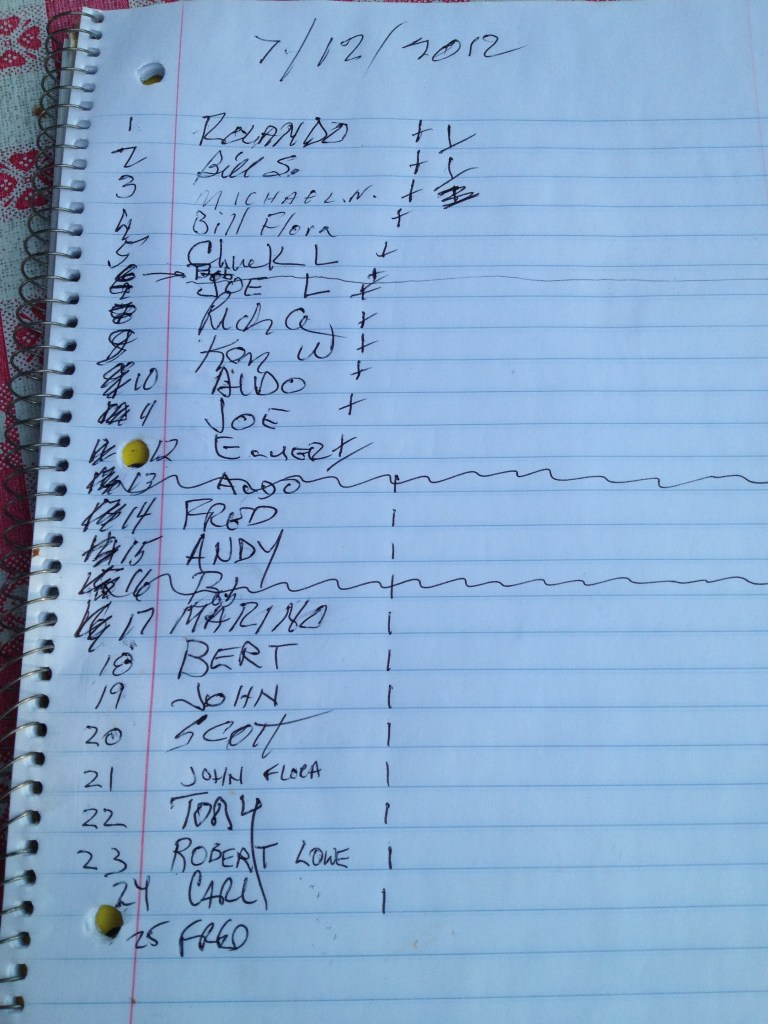 7/12/2012
1 ROLANDO + 1
2 Bill S. + 1
3 MICHAEL.N. +
4 Bill Flora +
5 Chuck L +
6 → Bob +
JOE L +
Rich +
8 Ken W +
10 ALDO +
JOE +
12
13 ALDO +
14 FRED 1
15 ANDY 1
16 Bob +
17 MARINO 1
18 BERT 1
19 JOHN 1
20 SCOTT 1
21 JOHN FLORA 1
22 TOBY 1
23 ROBERT LOWE 1
24 CARL 1
25 FRED